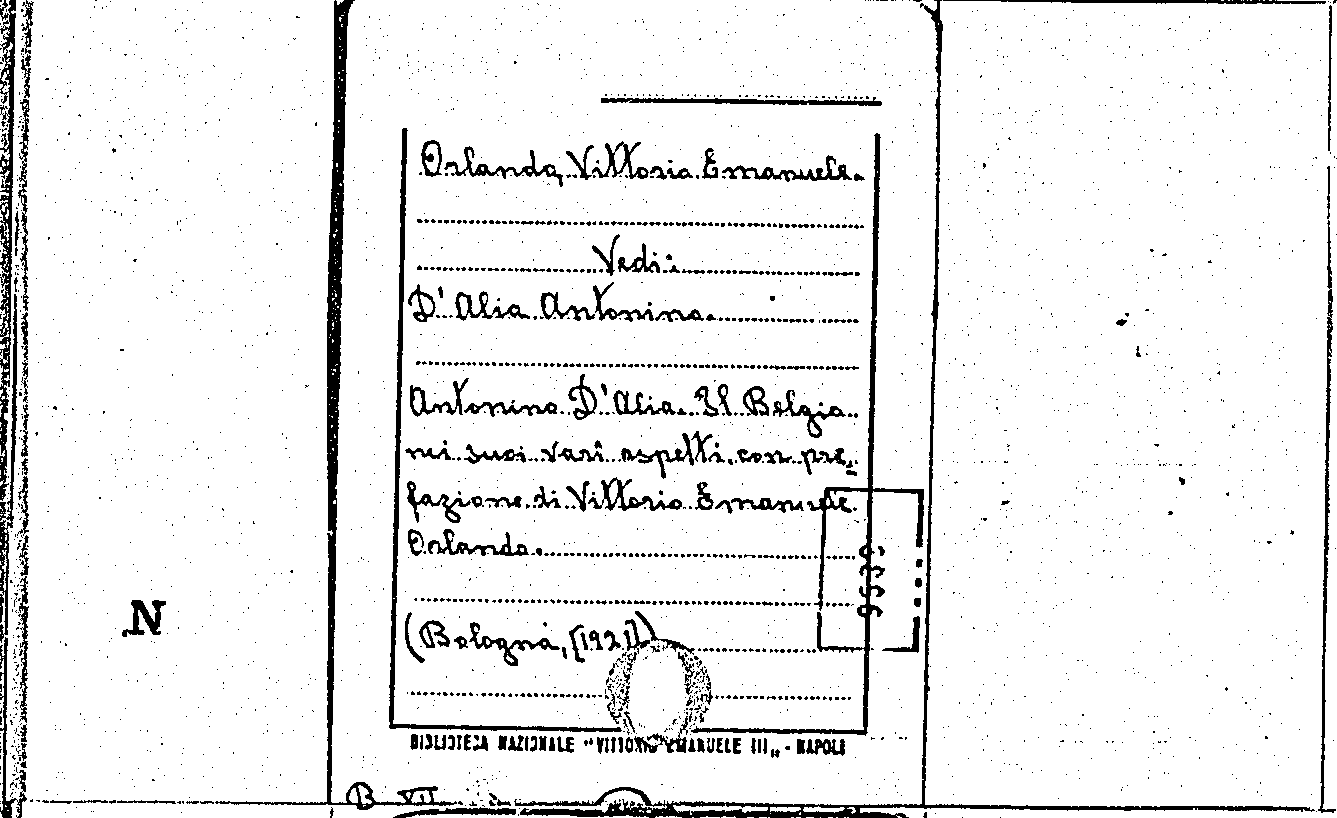 Orlando, Vittorio Emanuele.
Vedi:
D'Alia Antonino.
Antonino D'Alia. Il Belgio
nei suoi varî aspetti, con pre=
fazione di Vittorio Emanuele
Orlando.
(Bologna, [1921])
BIBLIOTECA NAZIONALE "VITTORIO EMANUELE III„ - NAPOLI
N
B VII